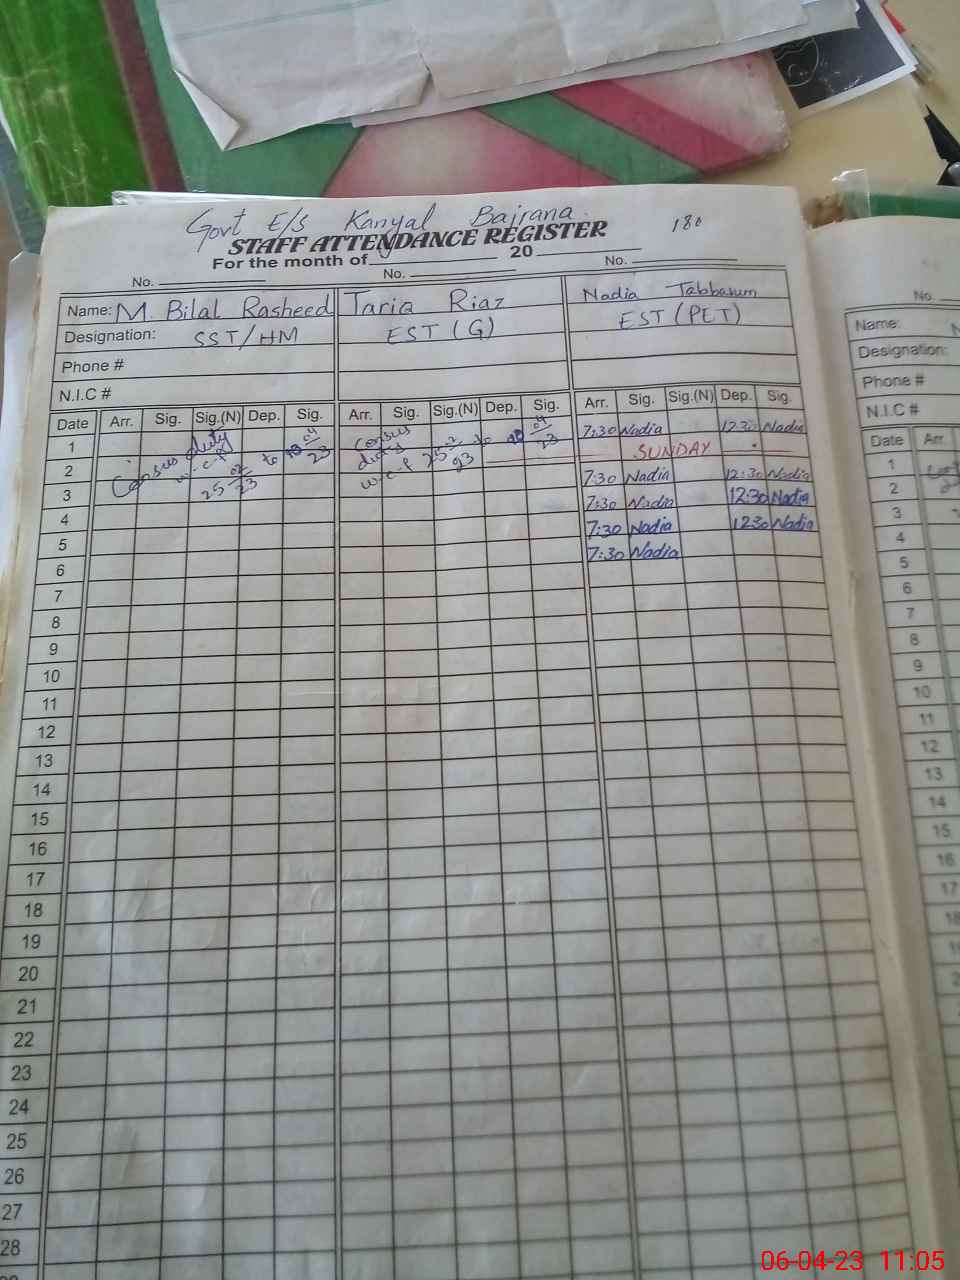 Govt E/S Kanyal Bajrana 180
STAFF ATTENDANCE REGISTER
For the month of 20
No. No. No.
Name: M. Bilal Rasheed Tariq Riaz Nadia Tabbasum
Designation: SST/HM EST (G) EST (PET)
Phone #
N.I.C #
Date Arr. Sig. Sig.(N) Dep. Sig. Arr. Sig. Sig.(N) Dep. Sig. Arr. Sig. Sig.(N) Dep. Sig.
1 7:30 Nadia 12:30 Nadia
2 SUNDAY
3 7:30 Nadia 12:30 Nadia
4 7:30 Nadia 12:30 Nadia
5 7:30 Nadia 1230 Nadia
6 7:30 Nadia
7
8
9
10
11
12
13
14
15
16
17
18
19
20
21
22
23
24
25
26
27
28
Census duty
25 02 23 to 04 23
duty
25 2 23 to 04 23
No.
Name:
Designation:
Phone #
N.I.C #
Date Arr.
1
2
3
4
5
6
7
8
9
10
11
12
13
14
15
16
17
18
06-04-23 11:05